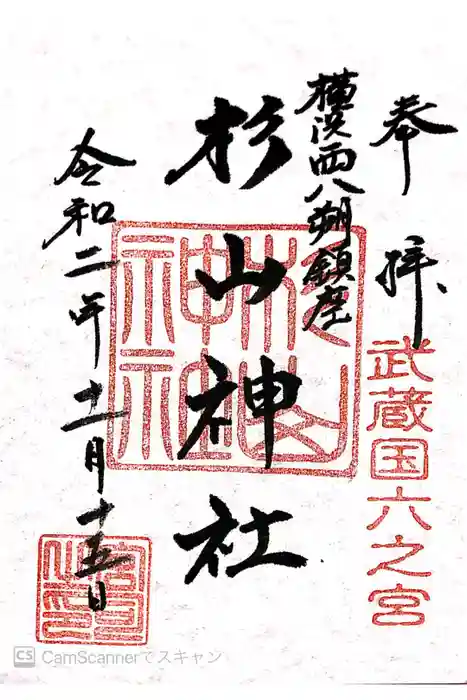 奉拝
武蔵国六之宮
横浜西八朔鎮座
杉山神社
令和二年十一月十五日
杉山神社
CS CamScannerでスキャン